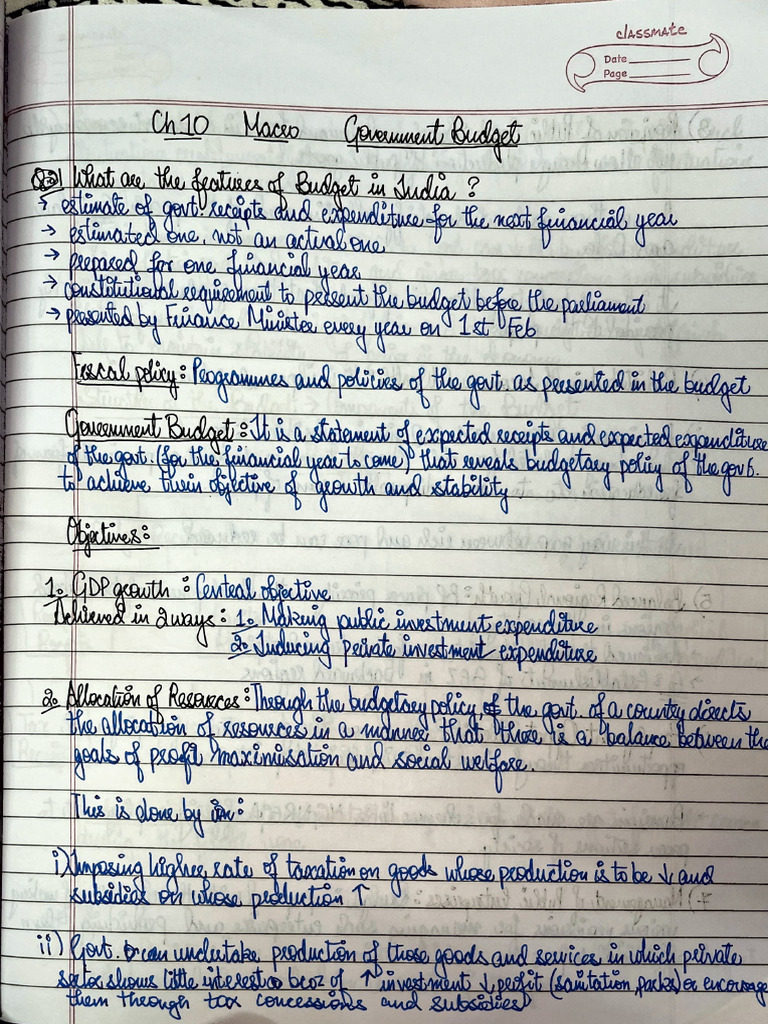 classmate
Date
Page
Ch 10 Macro Government Budget
Q1 What are the features of Budget in India ?
→ estimate of govt. receipts and expenditure for the next financial year
→ estimated one, not an actual one
→ prepared for one financial year
→ constitutional requirement to present the budget before the parliament
→ presented by Finance Minister every year on 1st Feb
Fiscal policy : Programmes and policies of the govt. as presented in the budget
Government Budget : It is a statement of expected receipts and expected expenditure
of the govt. (for the financial year to come) that reveals budgetary policy of the govt.
to achieve their objective of growth and stability
Objectives :
1. GDP growth : Central objective
Achieved in 2 ways : 1. Making public investment expenditure
2. Inducing private investment expenditure
2. Allocation of Resources : Through the budgetary policy, the govt. of a country directs
the allocation of resources in a manner that there is a balance between the
goals of profit maximisation and social welfare.
This is done by :
i) Imposing higher rate of taxation on goods whose production is to be ↓ and
subsidies on whose production ↑
ii) Govt. can undertake production of those goods and services in which private
sector shows little interest bcoz of ↑ investment ↓ profit (sanitation, parks) or encourage
them through tax concessions and subsidies)